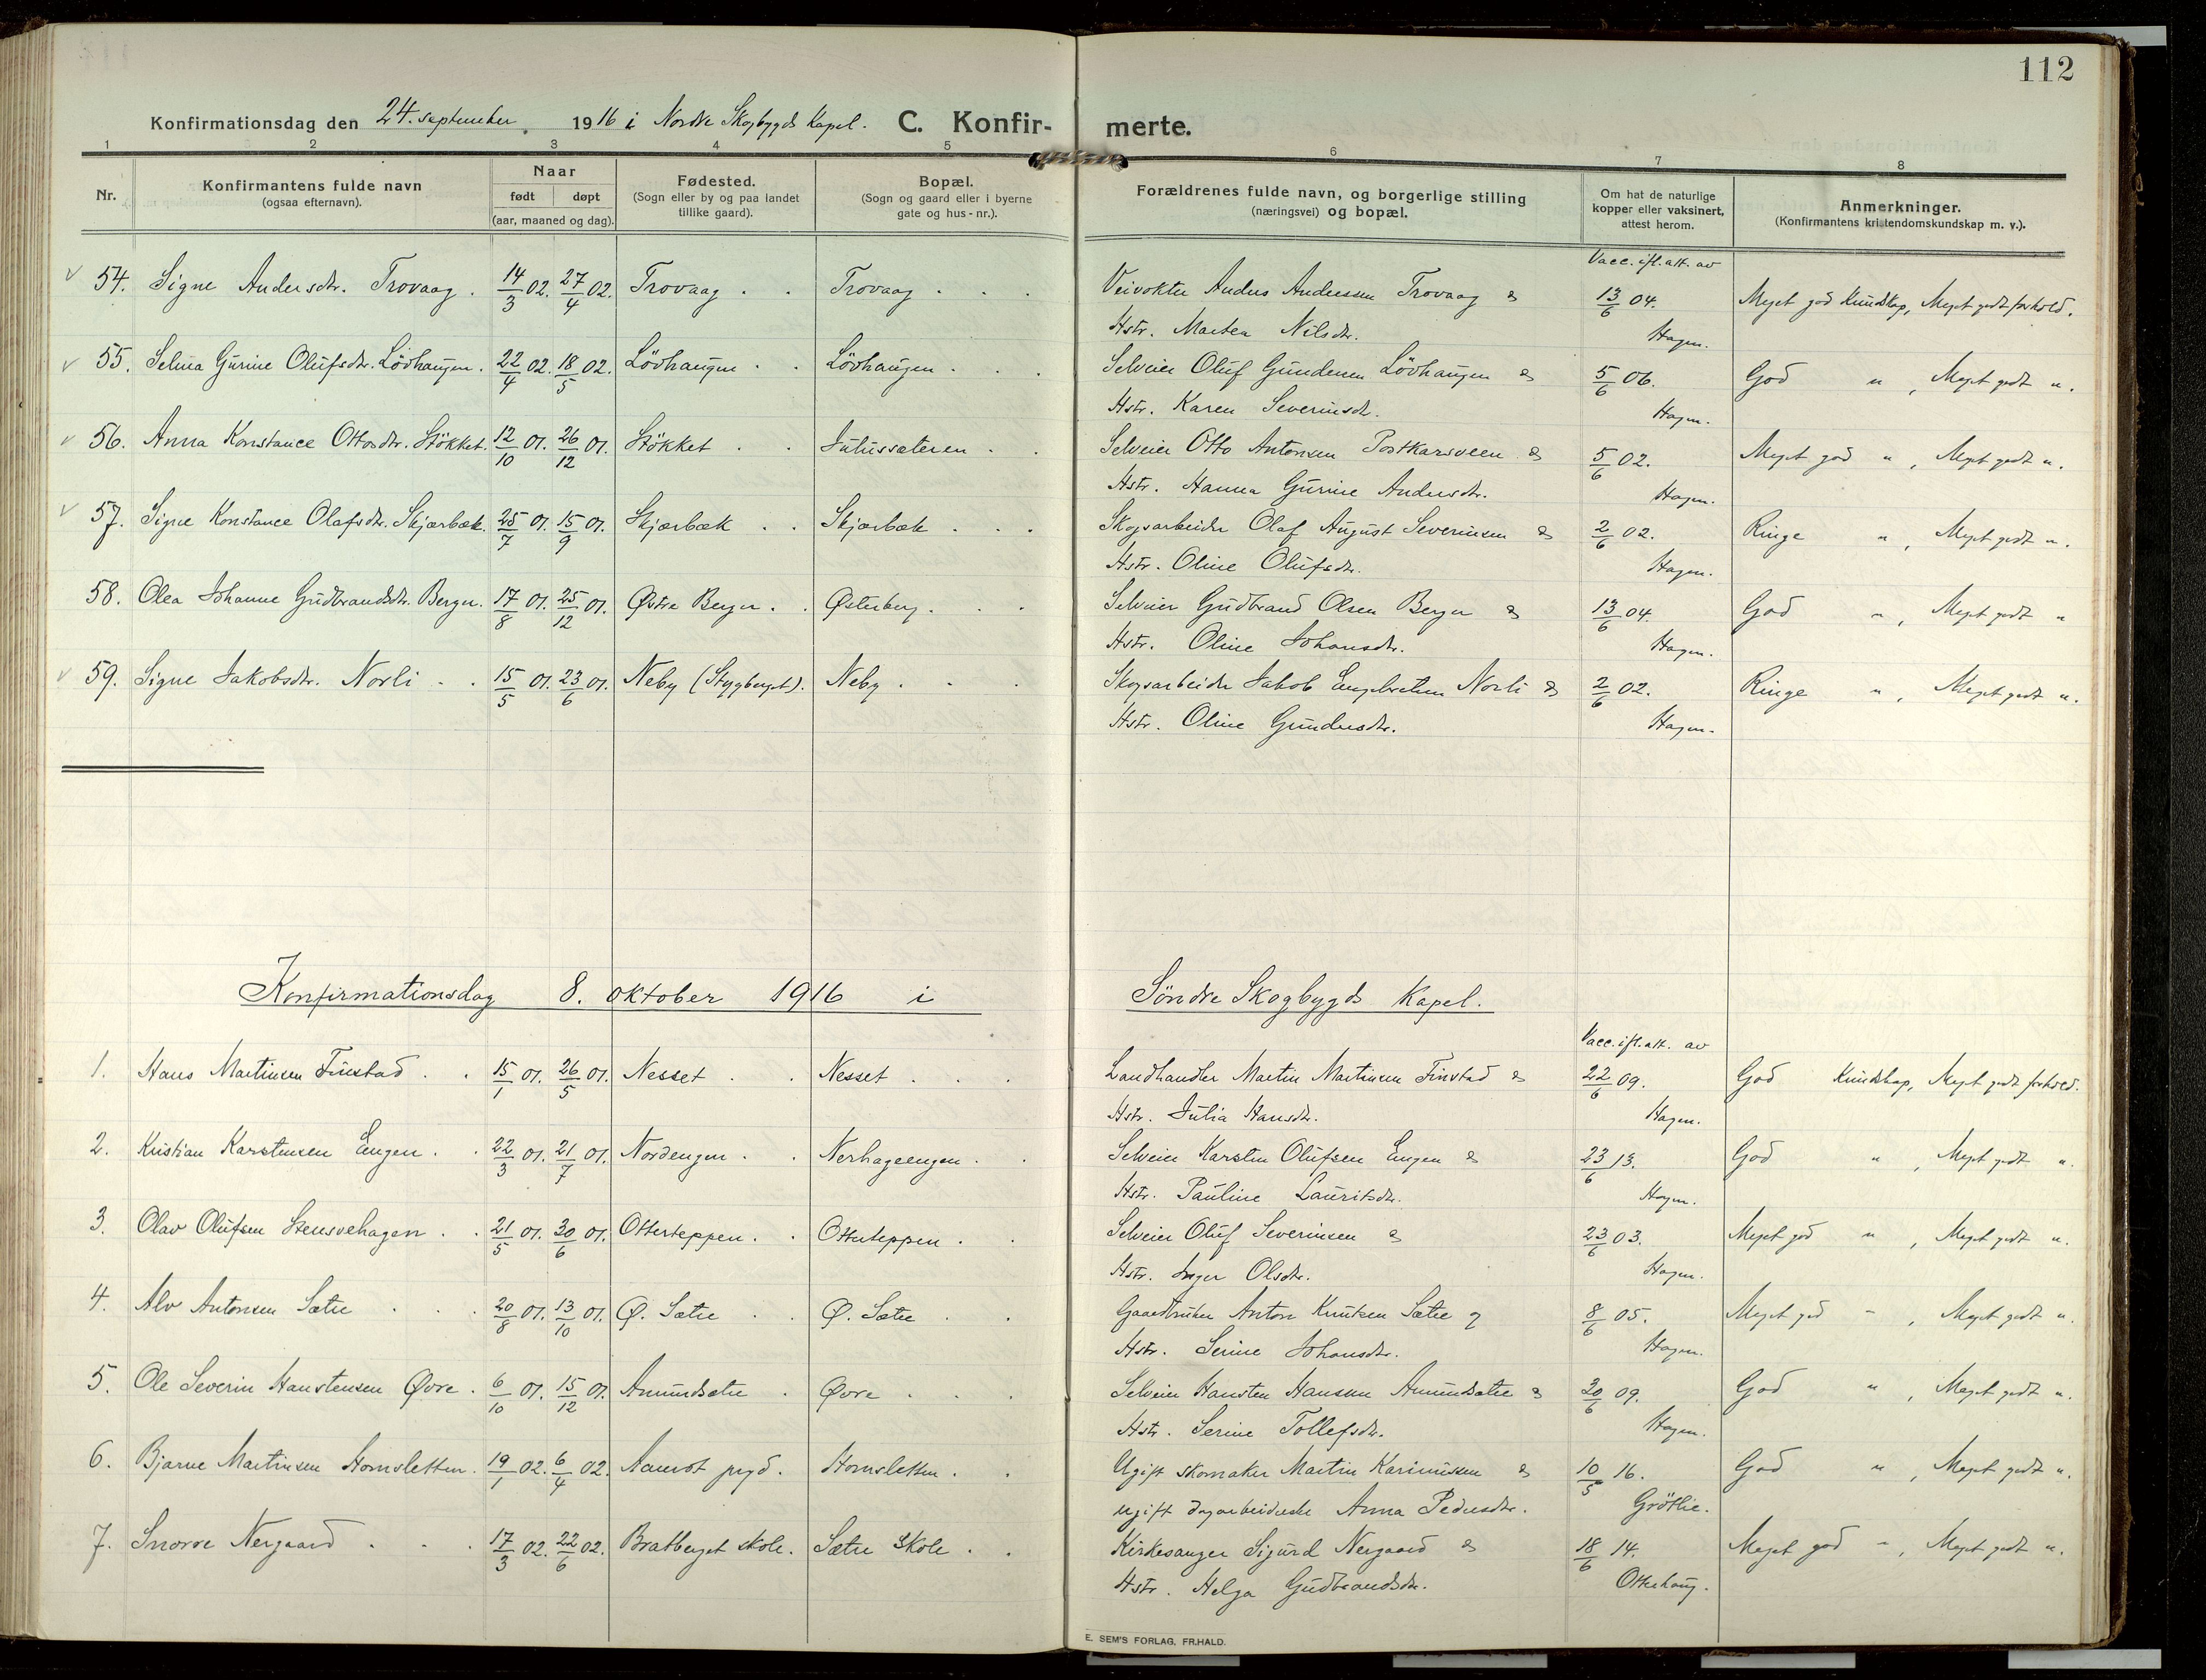 112
Konfirmationsdag den 24. september 1916 i Nordre Skogbygds Kapel. C. Konfirmerte.
1 2 3 4 5 6 7 8
Nr.
Konfirmantens fulde navn
(ogsaa efternavn).
Naar
født døpt
(aar, maaned og dag).
Fødested.
(Sogn eller by og paa landet
tillike gaard).
Bopæl.
(Sogn og gaard eller i byerne
gate og hus-nr.).
Forældrenes fulde navn, og borgerlige stilling
(næringsvei) og bopæl.
Om hat de naturlige
kopper eller vaksinert,
attest herom.
Anmerkninger.
(Konfirmantens kristendomskundskap m. v.).
Vacc. ifl. att. av
54. Signe Andersdtr. Trovaag. 14/3 02. 27/4 02. Trovaag . . Trovaag . . . Veivokter Anders Anderssen Trovaag & 13/6 04. Meget god Kundskap, Meget godt forhold.
Hstr. Martea Nilsdtr. Hagen.
55. Selma Gurine Olufsdtr. Lövhaugen. 22/4 02. 18/5 02. Lövhaugen . . Lövhaugen . . . Selveier Oluf Gundersen Lövhaugen & 5/6 06. God " , Meget godt ".
Hstr. Karen Severinsdtr. Hagen.
56. Anna Konstance Ottosdtr. Stökket. 12/10 01. 26/12 01. Stökket . . Julussæteren . . Selveier Otto Antonsen Postkarsveen & 5/6 02. Meget god " , Meget godt ".
Hstr. Hanna Gurine Andersdtr. Hagen.
57. Signe Konstance Olafsdtr. Skjærbæk. 25/7 01. 15/9 01. Skjærbæk . . Skjærbæk . . . Skogsarbeider Olaf August Severinsen & 2/6 02. Ringe " , Meget godt ".
Hstr. Oline Olufsdtr. Hagen.
58. Olea Johanne Gudbrandsdtr. Berger. 17/8 01. 25/12 01. Østre Berger . . Østerberg . . . Selveier Gudbrand Olsen Berger & 13/6 04. God " , Meget godt "
Hstr. Oline Johansdtr. Hagen.
59. Signe Jakobsdtr. Norli . . 15/5 01. 23/6 01. Neby (Styggberget). Neby . . . Skogsarbeider Jakob Engebretsen Norli & 2/6 02. Ringe " , Meget godt ".
Hstr. Oline Gundersdtr. Hagen.
Konfirmationsdag 8. oktober 1916 i Söndre Skogbygds Kapel.
Vacc. ifl. att. av
1. Hans Martinsen Finstad . . 15/1 01. 26/5 01. Nesset . . Nesset . . . Landhandler Martin Martinsen Finstad & 22/6 09. God Kundskap, Meget godt forhold.
Hstr. Julia Hansdtr. Hagen.
2. Kristian Karstensen Engen . . 22/3 01. 21/7 01. Nordengen . . Nerhageengen . . Selveier Karsten Olufsen Engen & 23/6 13. God " , Meget godt ".
Hstr. Pauline Lauritsdtr. Hagen.
3. Olav Olufsen Stensvehagen . . 21/5 01. 30/6 01. Otterteppen . . Otterteppen . . Selveier Oluf Severinsen & 23/6 03. Meget god " , Meget godt ".
Hstr. Inger Olsdtr. Hagen.
4. Alv Antonsen Sætre . . . 20/8 01. 13/10 01. Ø. Sætre . . Ø. Sætre . . Gaardbruker Anton Knutsen Sætre og 8/6 05. Meget god " , Meget godt ".
Hstr. Serine Johansdtr. Hagen.
5. Ole Severin Hanstensen Øvre . 6/10 01. 15/12 01. Amundsætre . Øvre . . . Selveier Hansten Hansen Amundsætre & 30/6 09. God " , Meget godt ".
Hstr. Serine Tollefsdtr. Hagen.
6. Bjarne Martinsen Hornsletten . 19/1 02. 6/4 02. Aamot prgd. . Hornsletten . . Ugift skomaker Martin Karinussen & 10/5 16. God " , Meget godt ".
ugift dagarbeiderske Anna Pedersdtr. Grötlie.
7. Snorre Nergaard . . . 17/3 02. 22/6 02. Bratberget skole. Sætre Skole . . Kirkesanger Sigurd Nergaard & 18/6 14. Meget god " , Meget godt ".
Hstr. Helga Gudbrandsdtr. Otterhaug.
E. SEM'S FORLAG, FR.HALD.